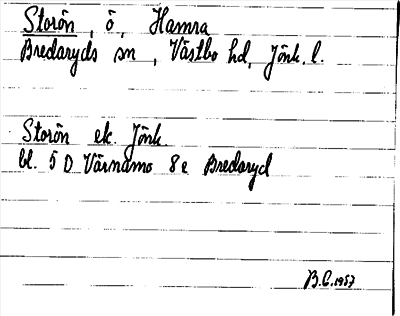 Storön, ö, Hamra
Bredaryds sn, Västbo hd, Jönk. l.
Storön ek. Jönk.
bl. 5 D Värnamo 8e Bredaryd
B.C. 1957